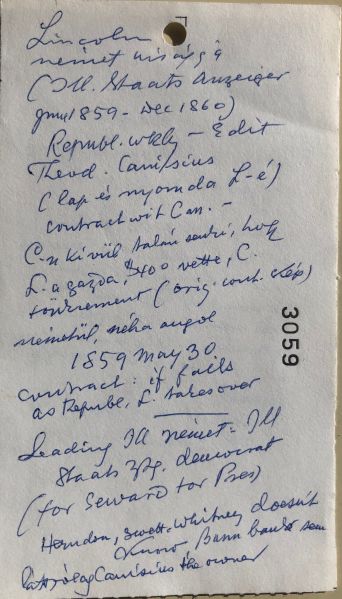 Lincoln
német újság
(Ill. Staats Anzeiger
June 1859 - Dec 1860)
Republ. wkly - Edit
Theod. Canisius
(lap és nyomda L-é)
contract wit Can. -
C-n kívül talán senki, hogy
L. a gazda, $400 vette, C.
(orig. cont. kép)
németül, néha angol
1859 May 30
contract: if fails
as Republ, L. takes over
Leading Ill német - Ill
Staats Ztg. democrat
(for Seward for Pres)
Herndon, Swett, Whitney doesn't
know Bunn bank sem
Canisius the owner
3059